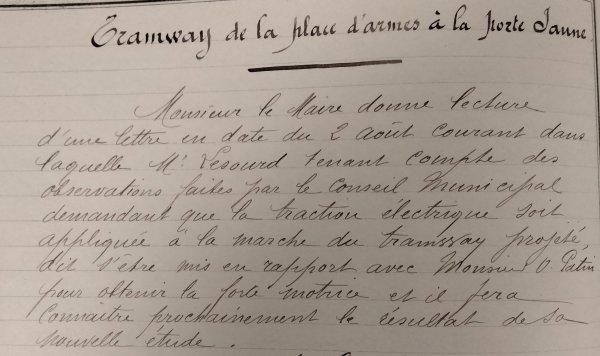 Tramway de la place d'armes à la Porte Jaune
Monsieur le Maire donne lecture
d'une lettre en date du 2 août courant dans
laquelle Mr Lesourd tenant compte des
observations faites par le Conseil Municipal
demandant que la traction électrique soit
appliquée à la marche du tramway projeté,
dit s'être mis en rapport avec Monsieur O. Patin
pour obtenir la force motrice et il fera
connaitre prochainement le résultat de sa
nouvelle étude.